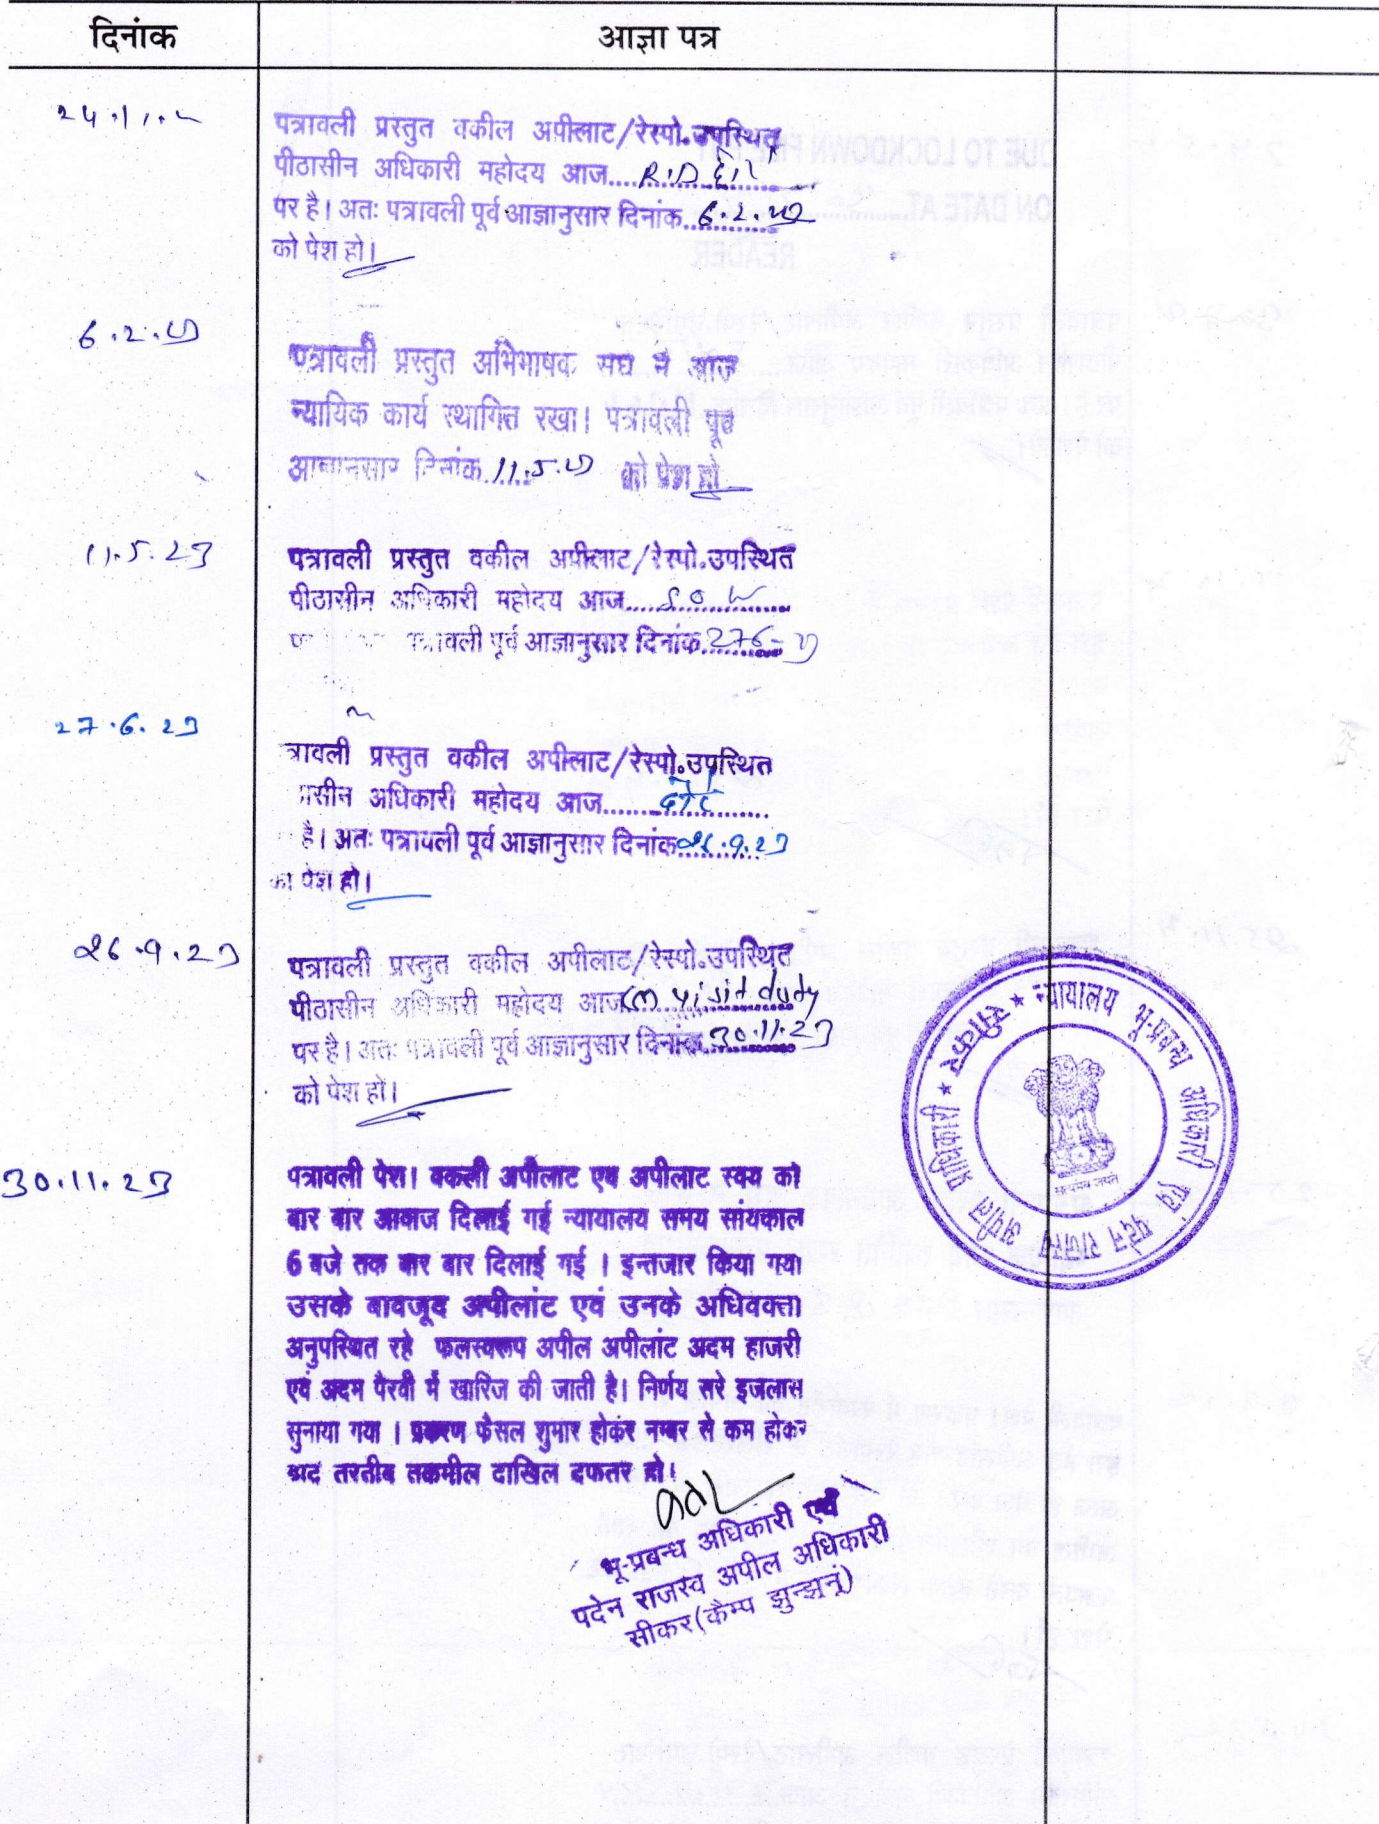 दिनांक आज्ञा पत्र
पत्रावली प्रस्तुत वकील अपीलाट/रेस्पो.उपस्थित
पीठासीन अधिकारी महोदय आज..........
पर है। अतः पत्रावली पूर्व आज्ञानुसार दिनांक 6.2.
को पेश हो।
6.2.
पत्रावली प्रस्तुत अभिभाषक संघ ने आज
न्यायिक कार्य स्थागित रखा। पत्रावली पूर्व
आज्ञानसार दिनांक 11.5. को पेश हो
11.5.23
पत्रावली प्रस्तुत वकील अपीलाट/रेस्पो.उपस्थित
पीठासीन अधिकारी महोदय आज..........
पत्रावली पूर्व आज्ञानुसार दिनांक
27.6.23
त्रावली प्रस्तुत वकील अपीलाट/रेस्पो.उपस्थित
ासीन अधिकारी महोदय आज..........
है। अतः पत्रावली पूर्व आज्ञानुसार दिनांक 26.9.23
का पेश हो।
26.9.23
पत्रावली प्रस्तुत वकील अपीलाट/रेस्पो.उपस्थित
पीठासीन अधिकारी महोदय आज visit duty
पर है। अतः पत्रावली पूर्व आज्ञानुसार दिनांक 30.11.23
को पेश हो।
30.11.23
पत्रावली पेश। वकली अपीलाट एव अपीलाट स्वय को
बार बार आवाज दिलाई गई न्यायालय समय सांयकाल
6 बजे तक बार बार दिलाई गई । इन्तजार किया गया
उसके बावजूद अपीलांट एवं उनके अधिवक्ता
अनुपस्थित रहे फलस्वरूप अपील अपीलांट अदम हाजरी
एवं अदम पैरवी में खारिज की जाती है। निर्णय सरे इजलास
सुनाया गया । प्रकरण फैसल शुमार होकर नम्बर से कम होकर
बाद तरतीब तकमील दाखिल दफतर हो।
भू-प्रबन्ध अधिकारी एवं
पदेन राजस्व अपील अधिकारी
सीकर(कैम्प झुन्झुनूं)
न्यायालय भू-प्रबन्ध अधिकारी एवं पदेन राजस्व अपील प्राधिकारी * सीकर *